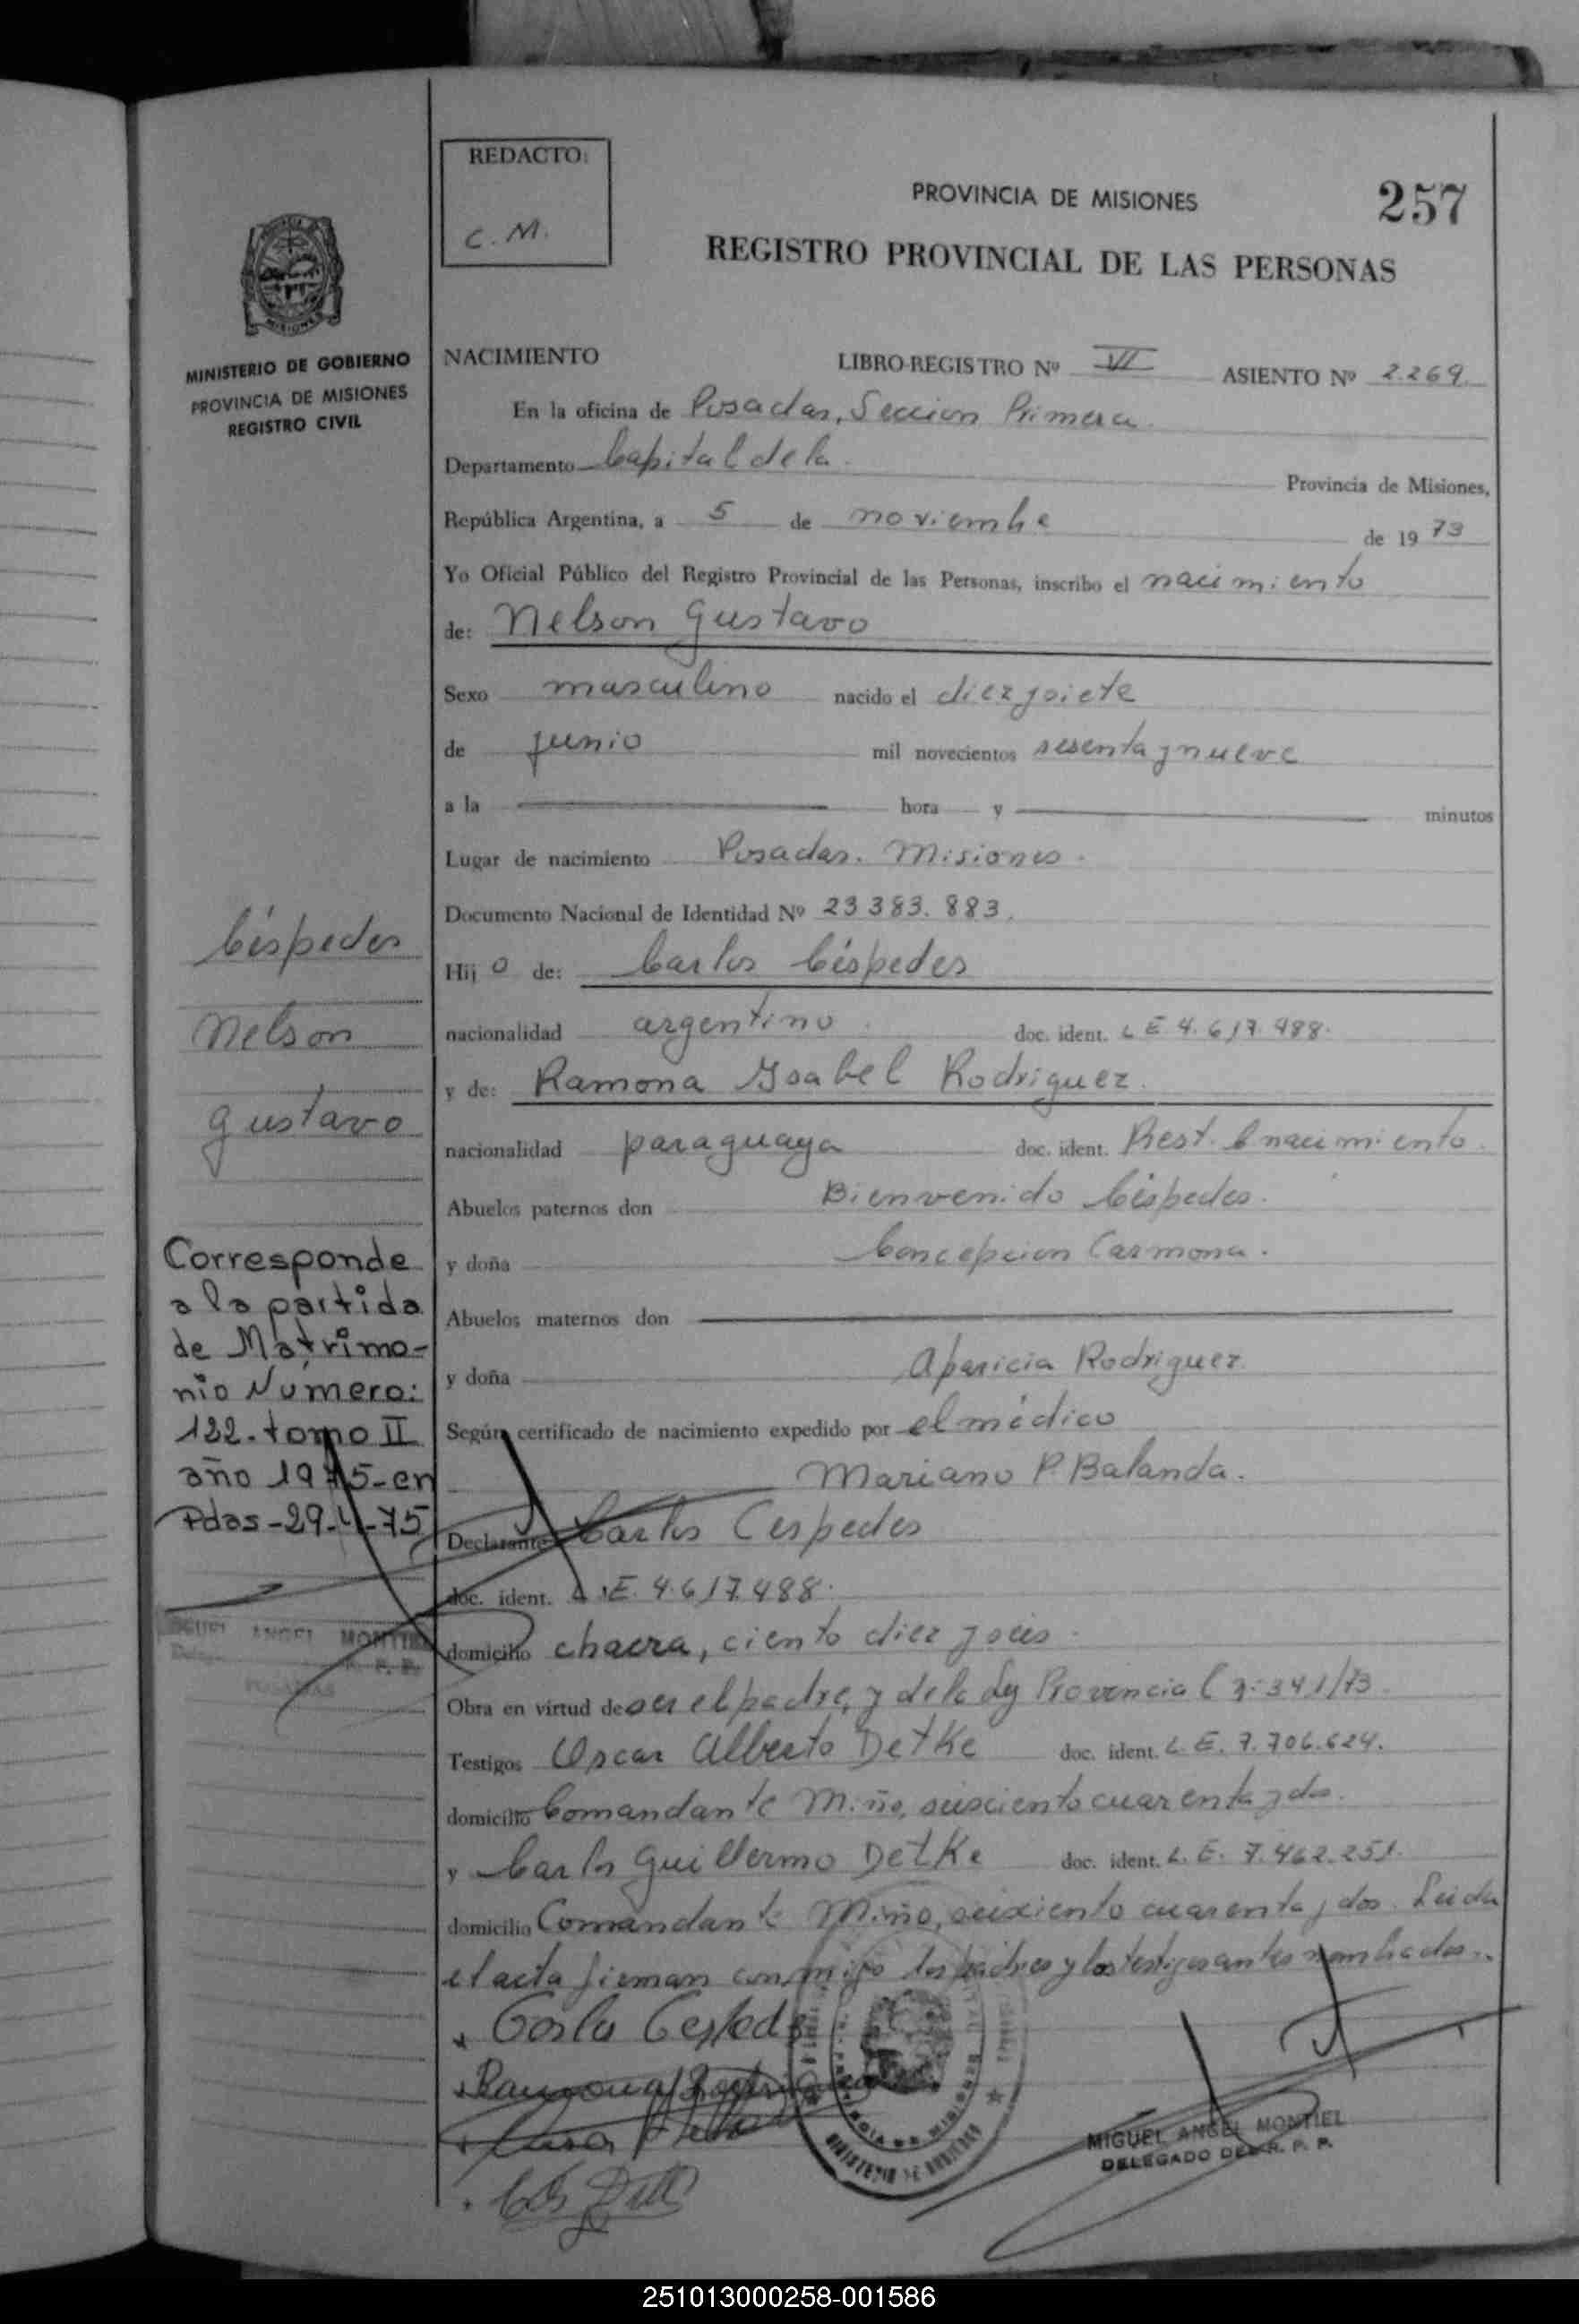 REDACTO:
C. M.
PROVINCIA DE MISIONES
257
REGISTRO PROVINCIAL DE LAS PERSONAS
MINISTERIO DE GOBIERNO
PROVINCIA DE MISIONES
REGISTRO CIVIL
NACIMIENTO LIBRO-REGISTRO Nº VI ASIENTO Nº 2.269.
En la oficina de Posadas, Seccion Primera.
Departamento Capital de la Provincia de Misiones,
República Argentina, a 5 de noviembre de 1973
Yo Oficial Público del Registro Provincial de las Personas, inscribo el nacimiento
de: Nelson Gustavo
Sexo masculino nacido el diez y siete
de junio mil novecientos sesenta y nueve
a la hora y minutos
Lugar de nacimiento Posadas. Misiones.
Documento Nacional de Identidad Nº 23 383. 883.
Hijo de: Carlos Céspedes
nacionalidad argentino. doc. ident. L E 4.617.488.
y de: Ramona Ysabel Rodriguez.
nacionalidad paraguaya doc. ident. nacimiento.
Abuelos paternos don Bienvenido Céspedes.
y doña Concepcion Carmona.
Abuelos maternos don
y doña Aparicia Rodriguez.
Según certificado de nacimiento expedido por el médico
Mariano P. Balanda.
Declarante Carlos Cespedes
doc. ident. L.E. 4.617.488.
domicilio chacra, ciento diez y seis.
Obra en virtud de ser el padre, y de la Ley Provincial nº 341/73.
Testigos Oscar Alberto Detke doc. ident. L. E. 7.706.624.
domicilio Comandante Miño, seisciento cuarenta y dos.
y Carlos Guillermo Detke doc. ident. L. E. 7.462.251.
domicilio Comandante Miño, seisciento cuarenta y dos. Leida
el acta firman conmigo los padres y los testigos antes nombrados.
Céspedes
Nelson
Gustavo
Corresponde
a la partida
de Matrimo-
nio Numero:
122-tomo II
año 1975-en
Pdas-29-4-75
MIGUEL ANGEL MONTIEL
R. P. P.
POSADAS
Carlos Cespedes
Ramona Rodriguez
MINISTERIO DE GOBIERNO
MIGUEL ANGEL MONTIEL
DELEGADO DEL R. P. P.
251013000258-001586